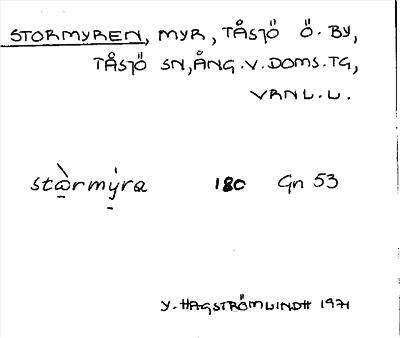 STORMYREN, MYR, TÅSJÖ Ö. BY,
TÅSJÖ SN, ÅNG.V.DOMS.TG,
VRNL.L.
stàrmýra 180 Gn 53
Y. HAGSTRÖMLINDH 1971